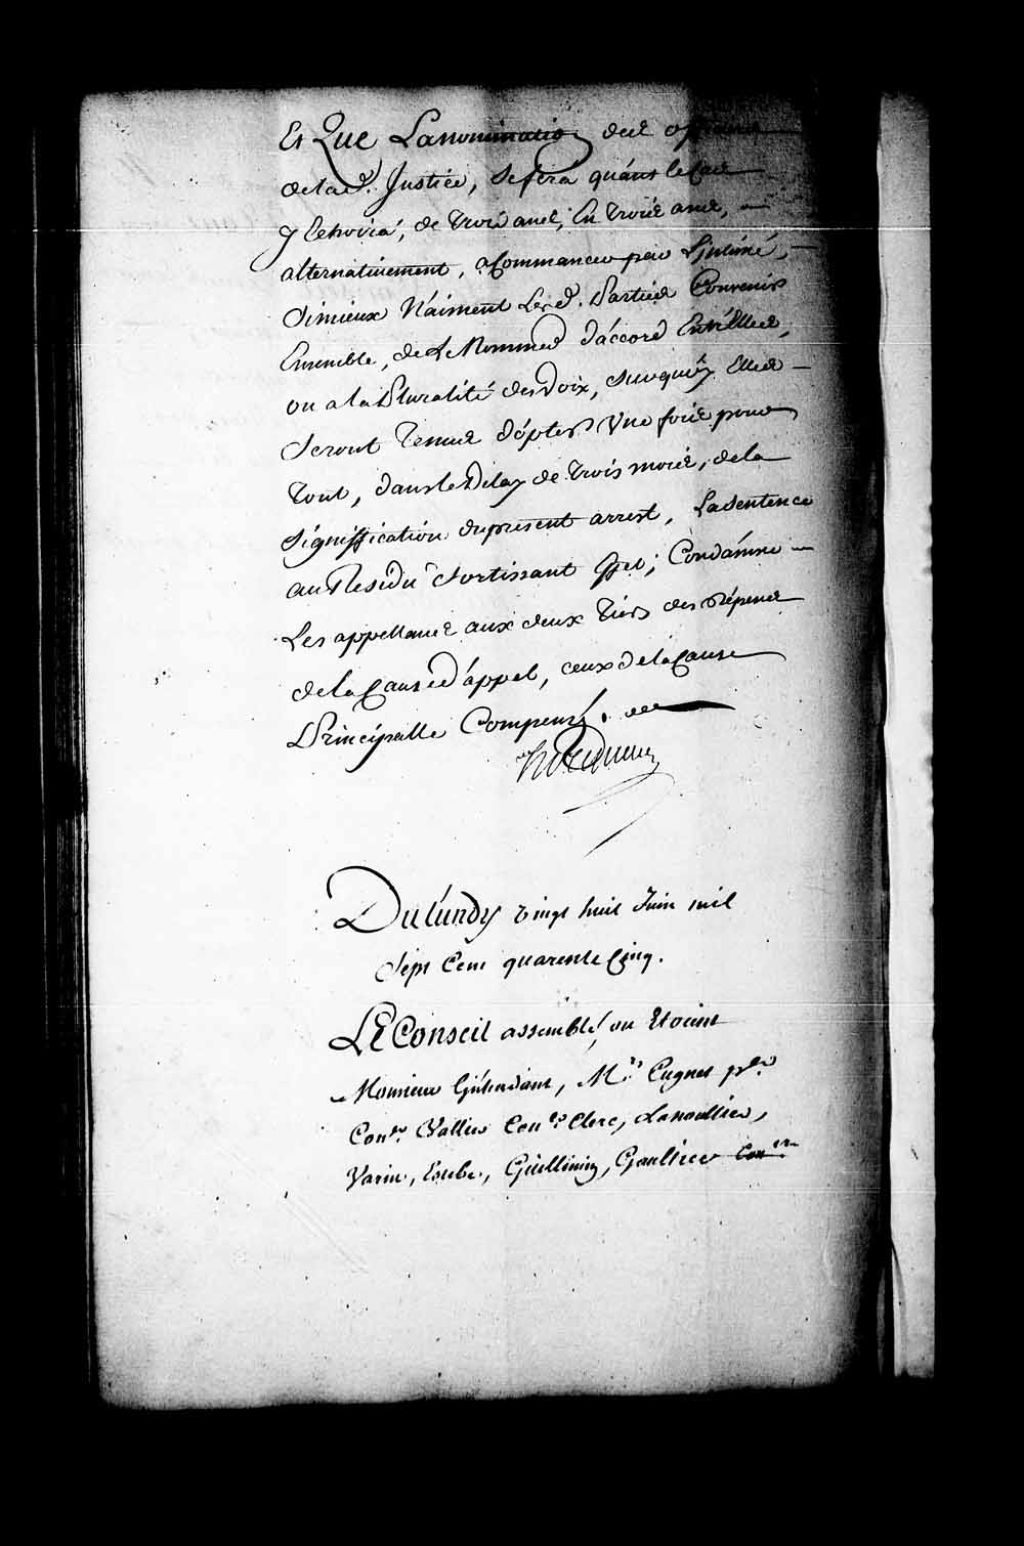 Et Que Lanomination des officiers
delad. Justice, sefera quánt le Cas
y Echoira, de trois ans, En trois ans,
alternativement, aCommancer par L'jntimé,
Simieux N'aiment Lesd. Parties Convenir
Ensemble, de Les Nommer d'accord Entr'Elles,
ou ala Pluralité des Voix, surquoy Elles
Seront Tenues d'ópter Une fois pour
Tout, dans le Delay de trois mois, dela
Signiffication dupresent arrest, LaSentence
au Residu Sortissant Effet; Condamne
Les appellants aux deux Tiers des Dépens
dela Cause d'appel, ceux de la Cause
Principalle Compensés.
Hocquart
Du Lundy vingt huit Juin mil
Sept Cent quarente Cinq.
LE Conseil assemblé, ou Etoient
Monsieur L'jntendant, Mrs. Cugnet pr.
Conr. Vallier Conr. Clerc, Lanoullier,
Varin, Estebe, Guillimin, Gaultier Conrs.